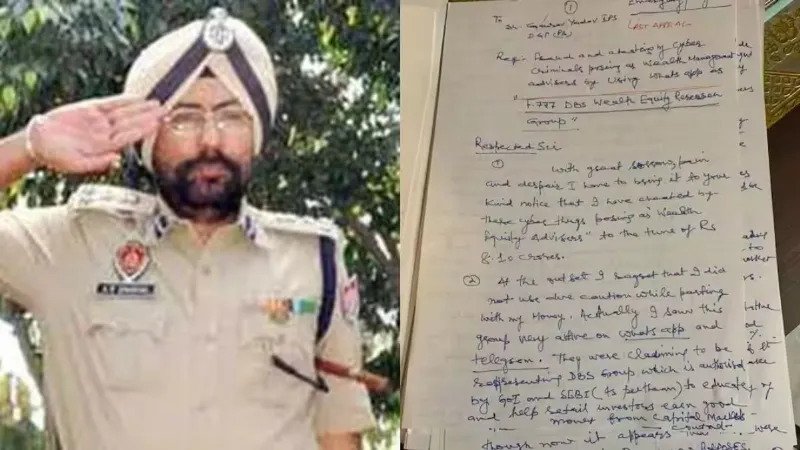 ①
To
Sh. Gaurav Yadav IPS
DGP (Pb)
LAST APPEAL
Regin Fraud and cheating by Cyber
Criminals posing as Wealth Management
advisers by Using Whats app as
"F.777 DBS Wealth Equity Research
Group"
Respected Sir
①
With great sorrow, pain
and despair I have to bring it to your
kind notice that I have cheated by
these cyber thugs posing as "Wealth
Equity Advisers" to the tune of Rs
8.10 crores.
② At the out set I regret that I did
not use due caution while parting
with my Money. Actually I saw this
group very active on whats app and
telegram. They were claiming to be
representing DBS Group which is authorised
by GOI and SEBI to educate
and help retail investors earn good
money from Capital Markets
though now it appears were